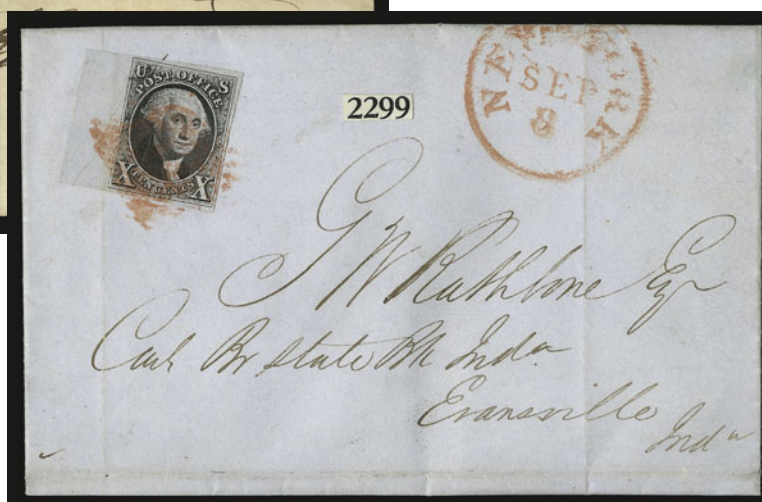 U S
POST OFFICE
X TEN CENTS X
2299
NEW YORK
SEP
8
G W Rathbone Esqr
Cash Br State Bk Inda
Evansville
Inda